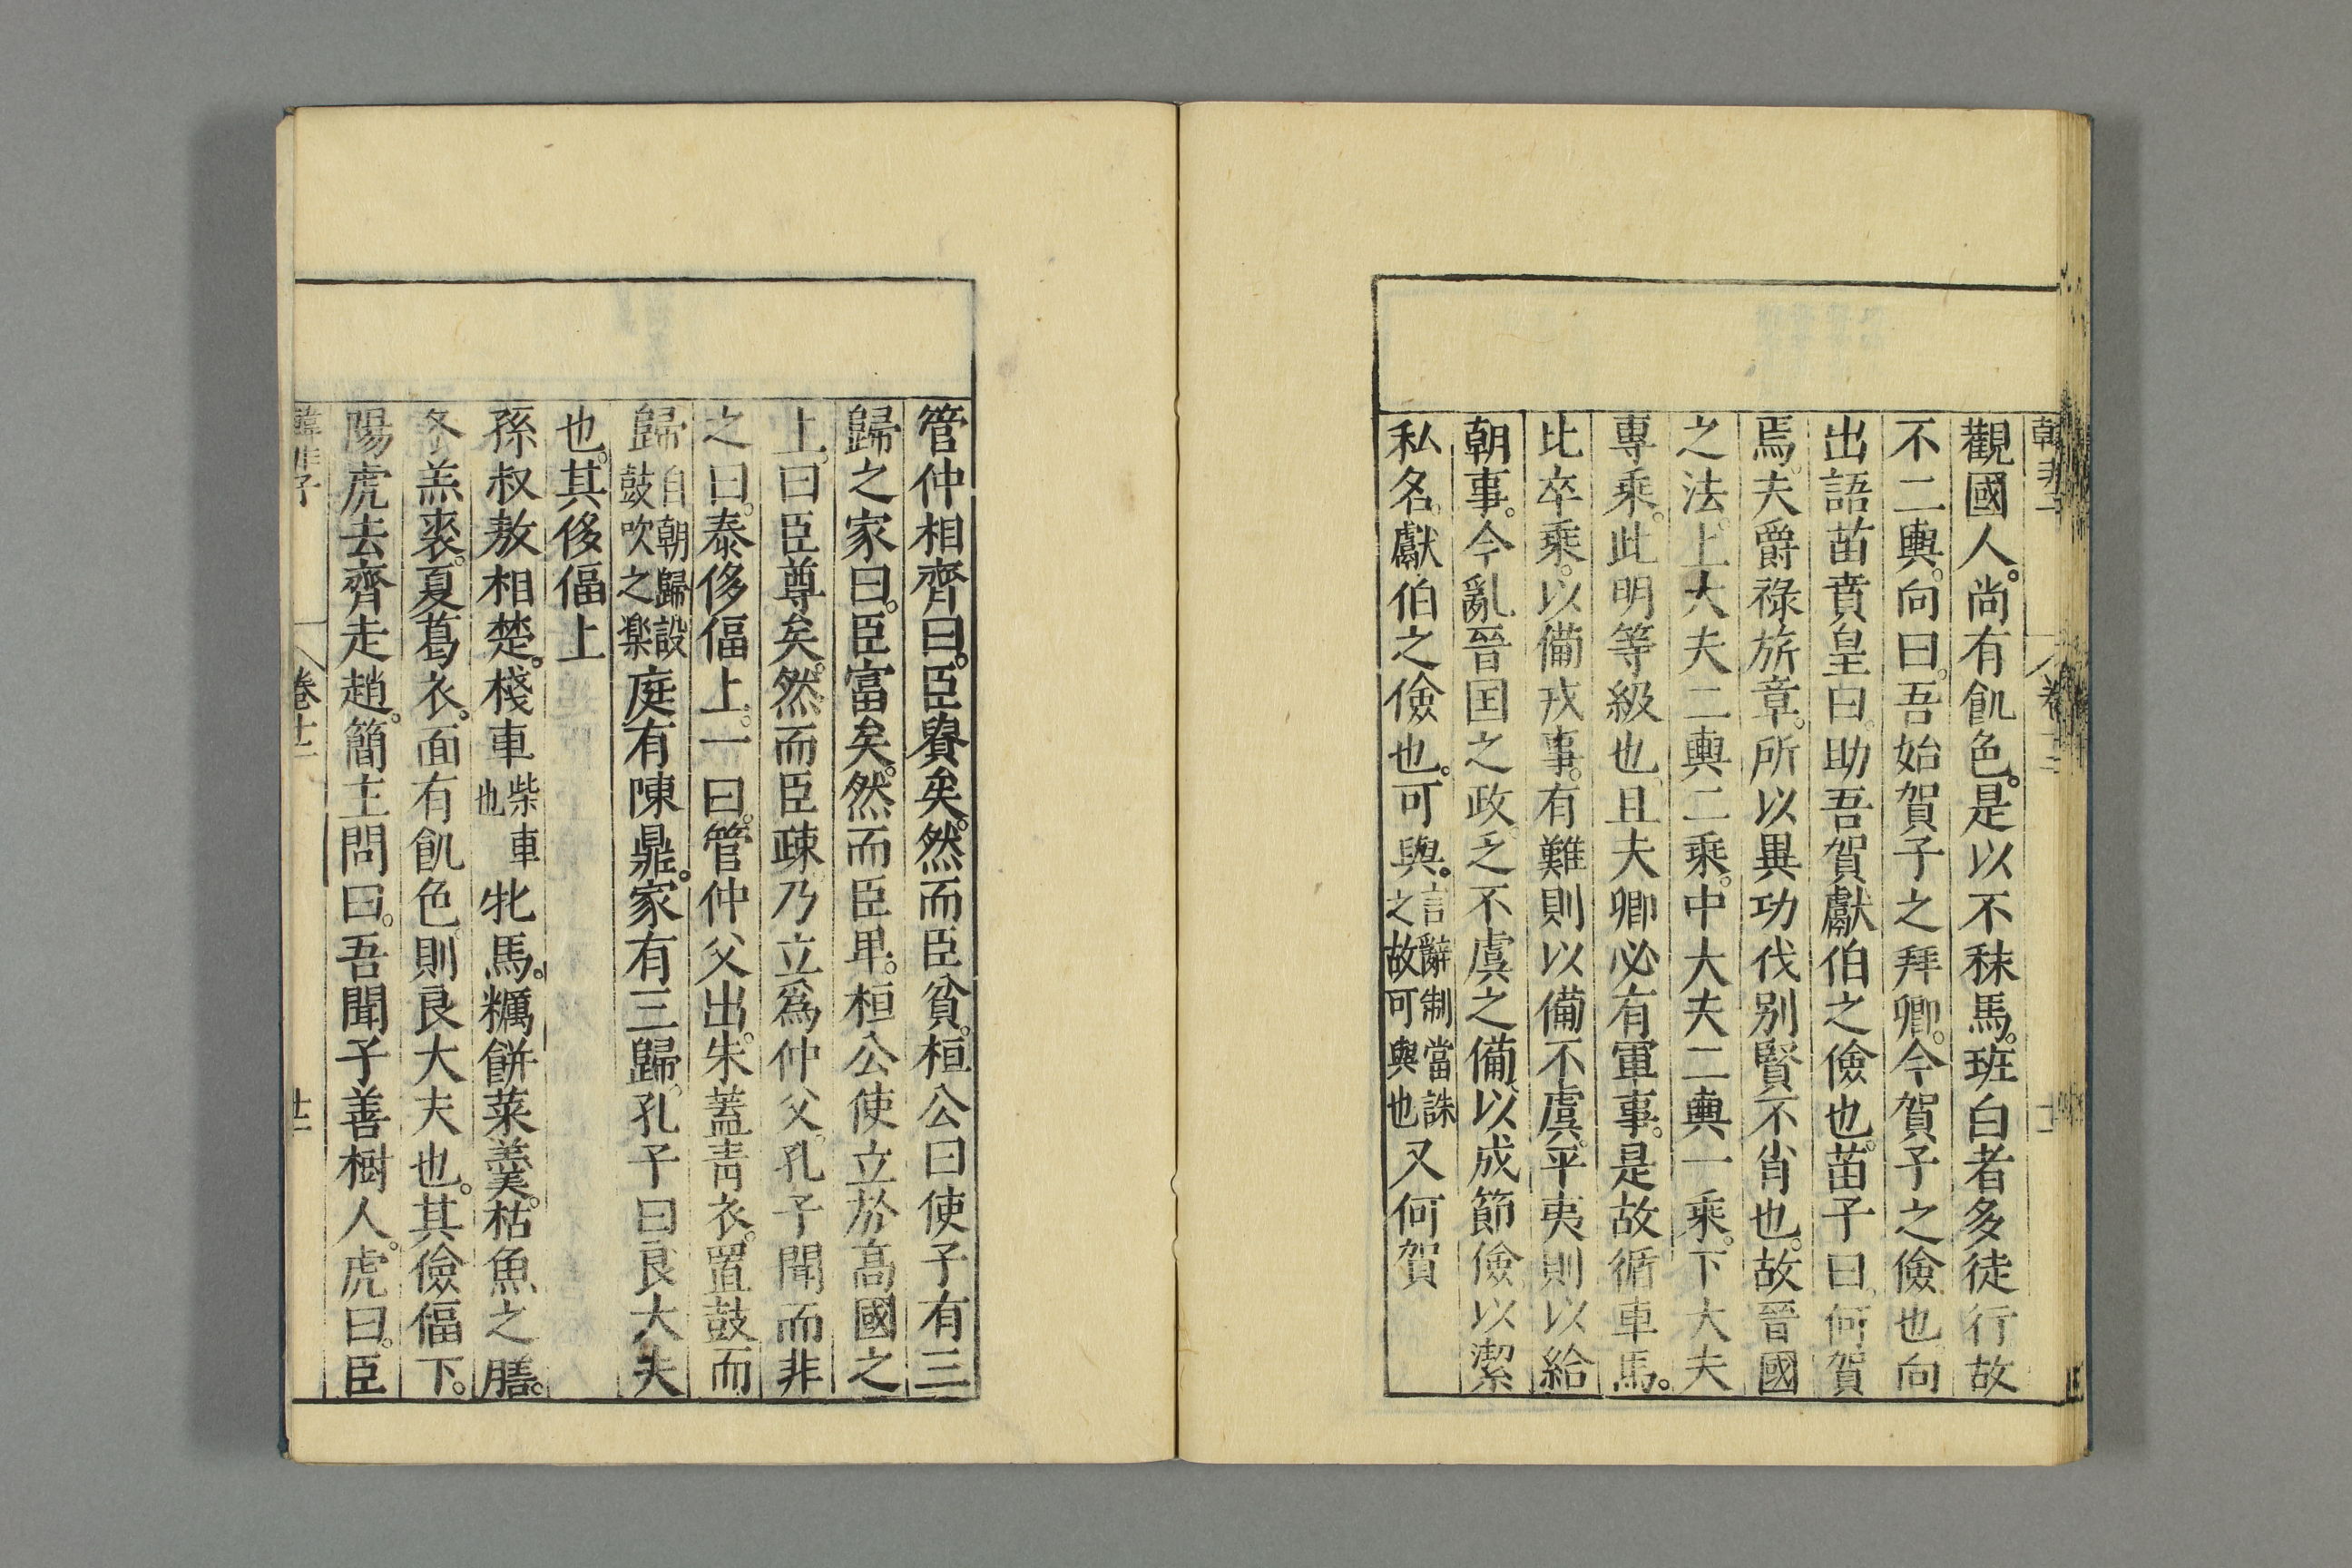 觀國人。尚有飢色。是以不秣馬。班白者多徒行故
不二輿。向曰。吾始賀子之拜卿。今賀子之儉也。向
出語苗賁皇曰。助吾賀獻伯之儉也。苗子曰。何賀
焉。夫爵祿旂章。所以異功伐别賢不肖也。故晉國
之法。上大夫二輿二乘。中大夫二輿一乘。下大夫
專乘。此明等級也。且夫卿必有軍事。是故循車馬。
比卒乘。以備戎事。有難則以備不虞。平夷則以給
朝事。今亂晉囯之政。乏不虞之備。以成節儉以潔
私名。獻伯之儉也。可與。言辭制當誅之故可與也又何賀
管仲相齊曰。臣貴矣。然而臣貧。桓公曰使子有三
歸之家曰。臣富矣。然而臣卑。桓公使立於高國之
上。曰臣尊矣。然而臣疎乃立爲仲父。孔子聞而非
之曰。泰侈偪上。一曰。管仲父出。朱蓋青衣。置鼓而
歸自朝歸設鼓吹之楽庭有陳鼎。家有三歸。孔子曰良大夫
也。其侈偪上
孫叔敖相楚。棧車柴車也牝馬。糲餅菜羹。枯魚之膳。
冬羔裘。夏葛衣。面有飢色。則良大夫也。其儉偪下。
陽虎去齊走趙。簡主問曰。吾聞子善樹人。虎曰。臣
韓非子 卷十二 十二